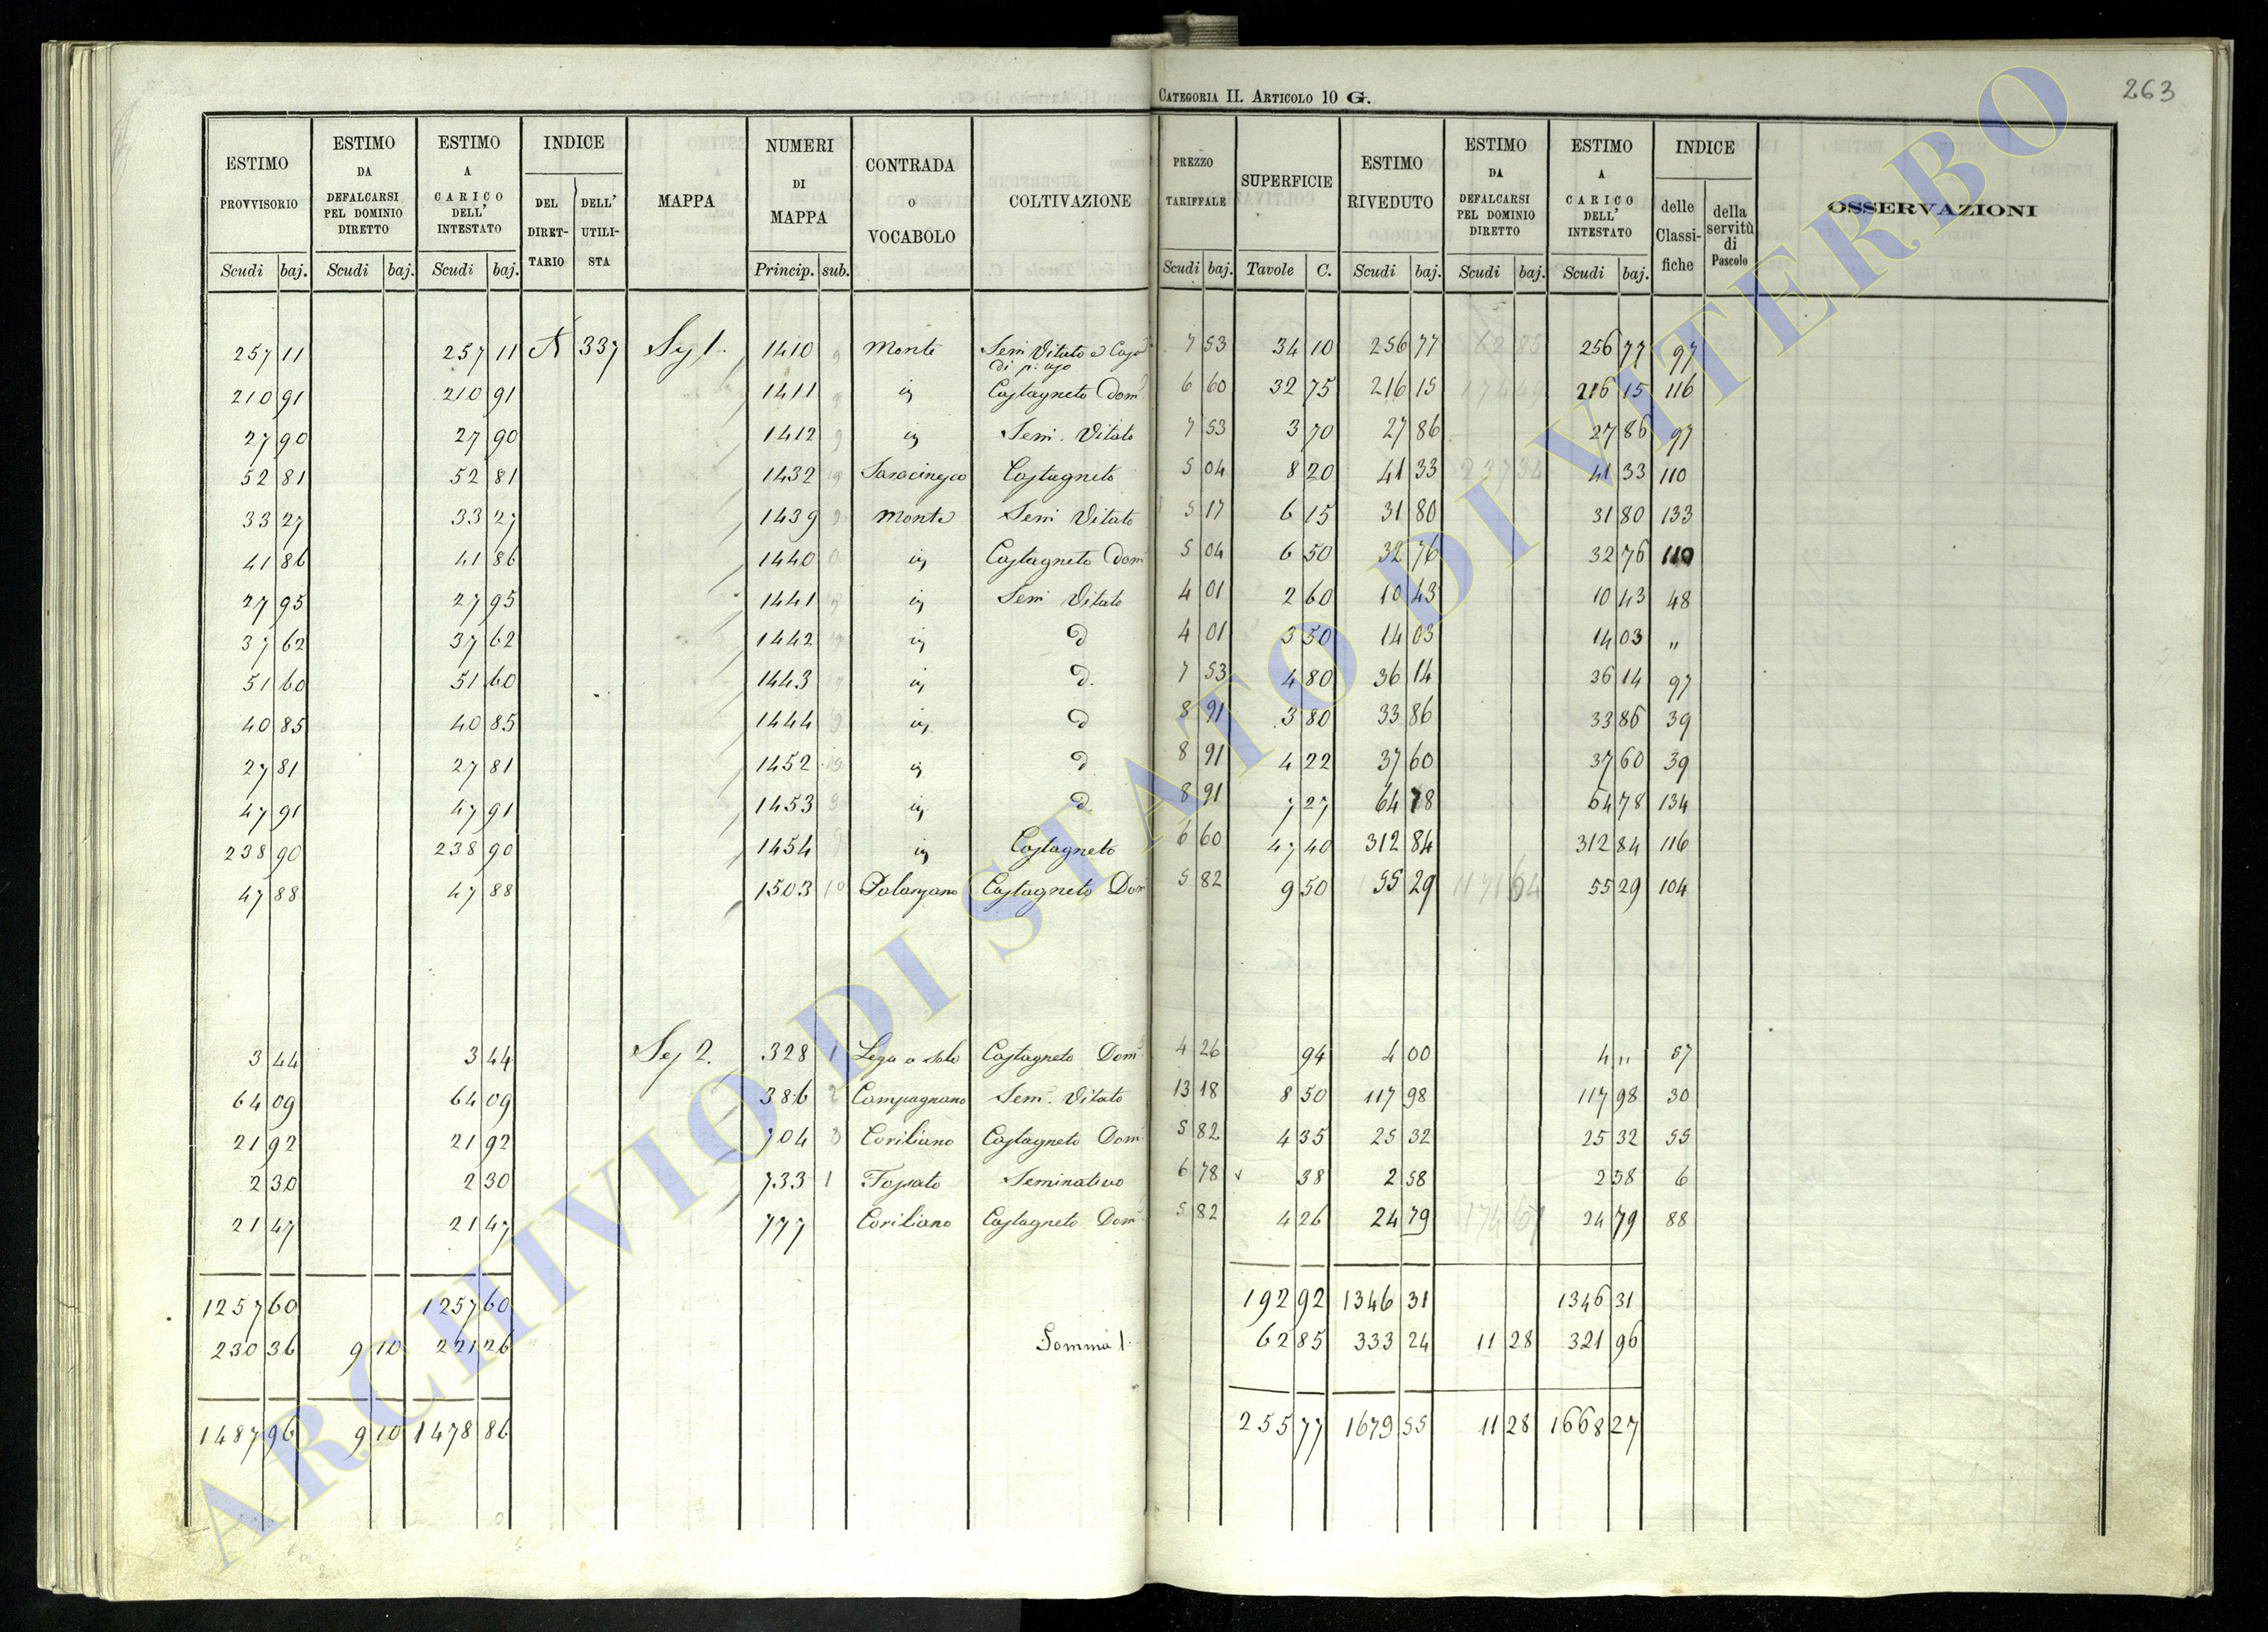 CATEGORIA II. ARTICOLO 10 G.
263
ESTIMO PROVVISORIO | ESTIMO DA DEFALCARSI PEL DOMINIO DIRETTO | ESTIMO A CARICO DELL' INTESTATO | INDICE DEL DIRET-TARIO | DELL' UTILI-STA | MAPPA | NUMERI DI MAPPA | CONTRADA O VOCABOLO | COLTIVAZIONE | PREZZO TARIFFALE | SUPERFICIE | ESTIMO RIVEDUTO | ESTIMO DA DEFALCARSI PEL DOMINIO DIRETTO | ESTIMO A CARICO DELL' INTESTATO | INDICE delle Classi-fiche | della servitù di Pascolo | OSSERVAZIONI
Scudi baj. | Scudi baj. | Scudi baj. | Princip. sub. | Scudi baj. | Tavole C. | Scudi baj. | Scudi baj. | Scudi baj.
257 11 | 257 11 | 337 | 1410 | Monte | Sem Vitato | 7 53 | 34 10 | 256 77 | 256 77 | 97
210 91 | 210 91 | 1411 | Castagneto Dom | 6 60 | 32 75 | 216 15 | 216 15 | 116
27 90 | 27 90 | 1412 | Sem. Vitato | 7 53 | 3 70 | 27 86 | 27 86 | 97
52 81 | 52 81 | 1432 | Saracinesco | Castagneto | 5 04 | 8 20 | 41 33 | 41 33 | 110
33 27 | 33 27 | 1439 | Monte | Sem Vitato | 5 17 | 6 15 | 31 80 | 31 80 | 133
41 86 | 41 86 | 1440 | Castagneto Dom | 5 04 | 6 50 | 32 76 | 32 76 | 110
27 95 | 27 95 | 1441 | Sem Vitato | 4 01 | 2 60 | 10 43 | 10 43 | 48
37 62 | 37 62 | 1442 | d | 4 01 | 3 50 | 14 03 | 14 03 | "
51 60 | 51 60 | 1443 | d. | 7 53 | 4 80 | 36 14 | 36 14 | 97
40 85 | 40 85 | 1444 | d | 8 91 | 3 80 | 33 86 | 33 86 | 39
27 81 | 27 81 | 1452 | d | 8 91 | 4 22 | 37 60 | 37 60 | 39
47 91 | 47 91 | 1453 | d. | 8 91 | 7 27 | 64 78 | 64 78 | 134
238 90 | 238 90 | 1454 | Castagneto | 6 60 | 47 40 | 312 84 | 312 84 | 116
47 88 | 47 88 | 1503 | Palanzano | Castagneto Dom | 5 82 | 9 50 | 55 29 | 55 29 | 104
3 44 | 3 44 | 328 1 | Castagneto Dom | 4 26 | 94 | 4 00 | 4 " | 57
64 09 | 64 09 | 386 2 | Campagnano | Sem. Vitato | 13 18 | 8 50 | 117 98 | 117 98 | 30
21 92 | 21 92 | 704 3 | Coriliano | Castagneto Dom | 5 82 | 4 35 | 25 32 | 25 32 | 55
2 30 | 2 30 | 733 1 | Fossato | Seminativo | 6 78 | 38 | 2 58 | 2 58 | 6
21 47 | 21 47 | 777 | Coriliano | Castagneto Dom | 5 82 | 4 26 | 24 79 | 24 79 | 88
1257 60 | 1257 60 | 192 92 | 1346 31 | 1346 31
230 36 | 9 10 | 221 26 | Somma | 62 85 | 333 24 | 11 28 | 321 96
1487 96 | 9 10 | 1478 86 | 255 77 | 1679 55 | 11 28 | 1668 27
ARCHIVIO DI STATO DI VITERBO